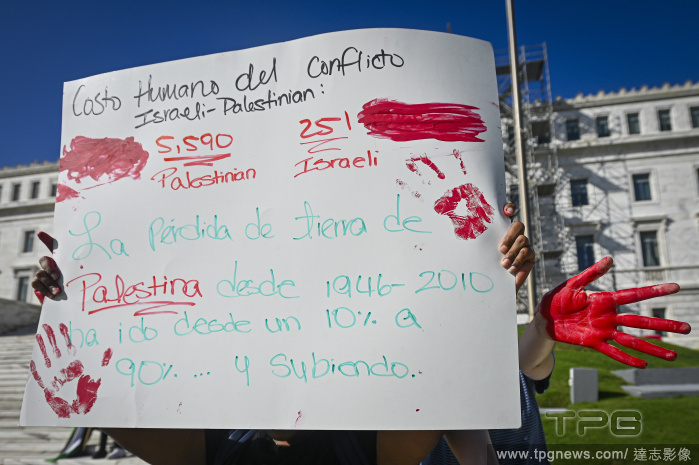 Costo Humano del Conflicto
Israeli-Palestinian:
5,590 251
Palestinian Israeli
La pérdida de tierra de
Palestina desde 1946-2010
ha ido desde un 10% a
90% ... y subiendo.
TPG
www.tpgnews.com/ 達志影像